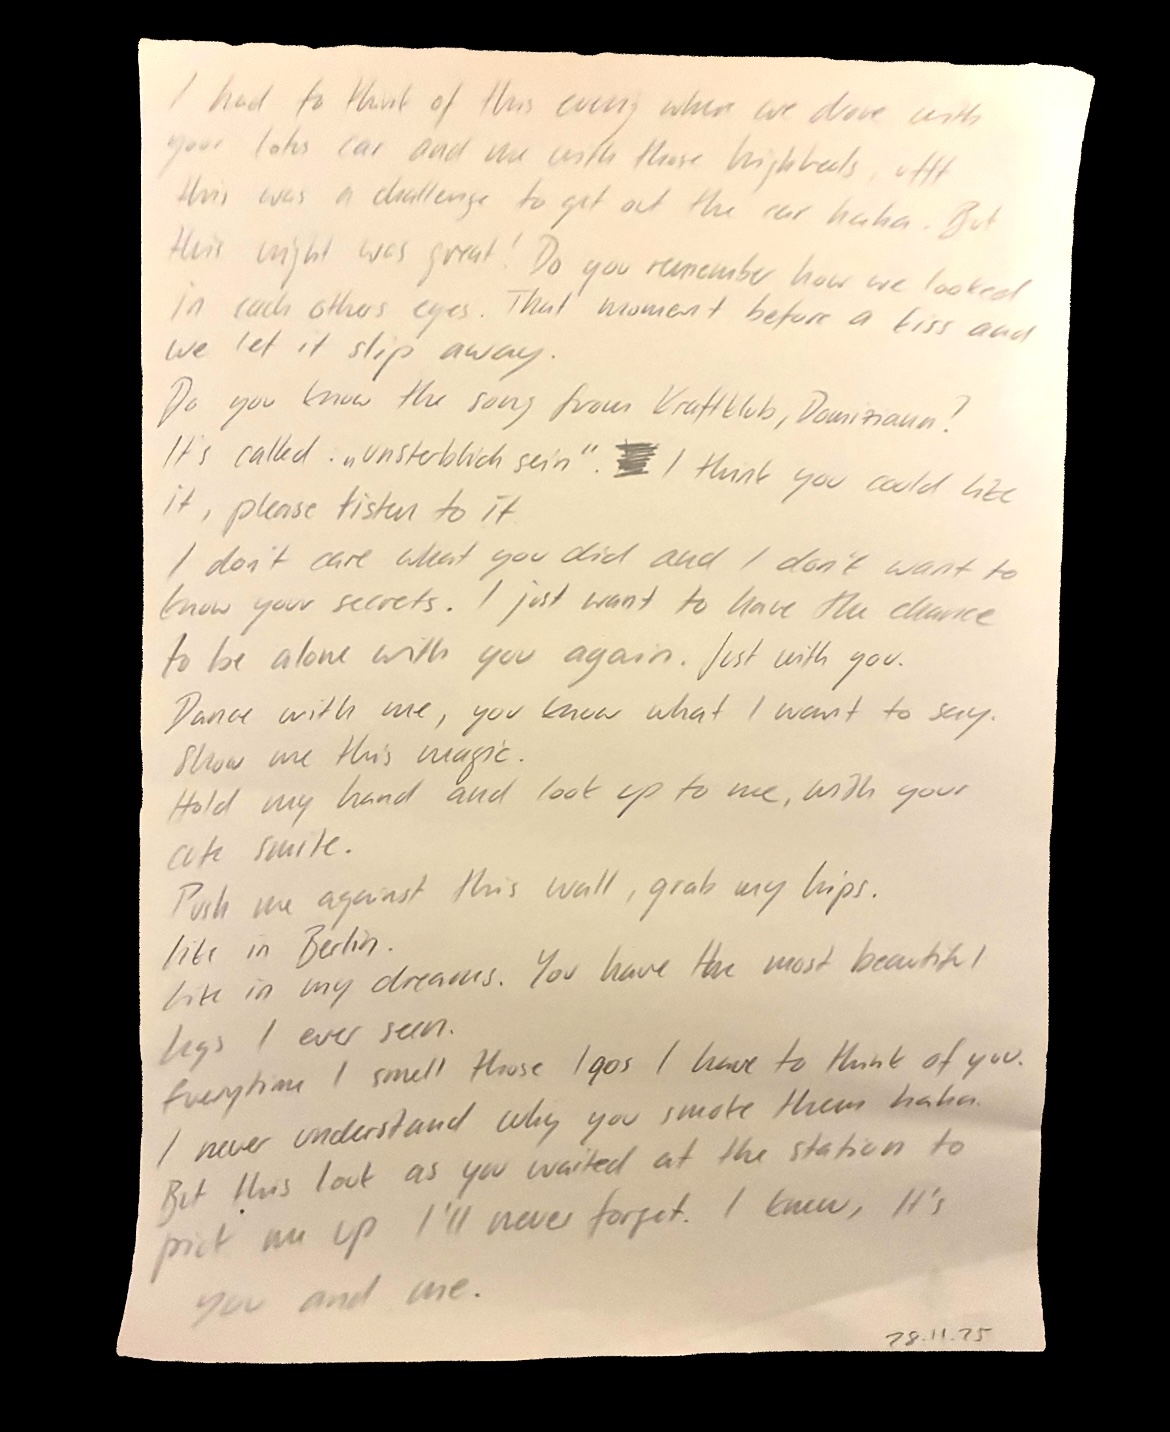 I had to think of this evenig when we drove with
your lotus car and me with those highheels, ufff
this was a challenge to get out the car haha. But
this night was great! Do you remember how we looked
in each others eyes. That moment before a kiss and
we let it slip away.
Do you know the song from Kraftklub, Domiziana?
It's called: „unsterblich sein". I think you could like
it, please listen to it
I don't care what you did and I don't want to
know your secrets. I just want to have the chance
to be alone with you again. Just with you.
Dance with me, you know what I want to say.
Show me this magic.
Hold my hand and look up to me, with your
cute smile.
Push me against this wall, grab my hips.
like in Berlin.
Like in my dreams. You have the most beautiful
legs I ever seen.
Everytime I smell those Iqos I have to think of you.
I never understand why you smoke them haha.
But this look as you waited at the station to
pick me up I'll never forget. I knew, It's
you and me.
28.11.25